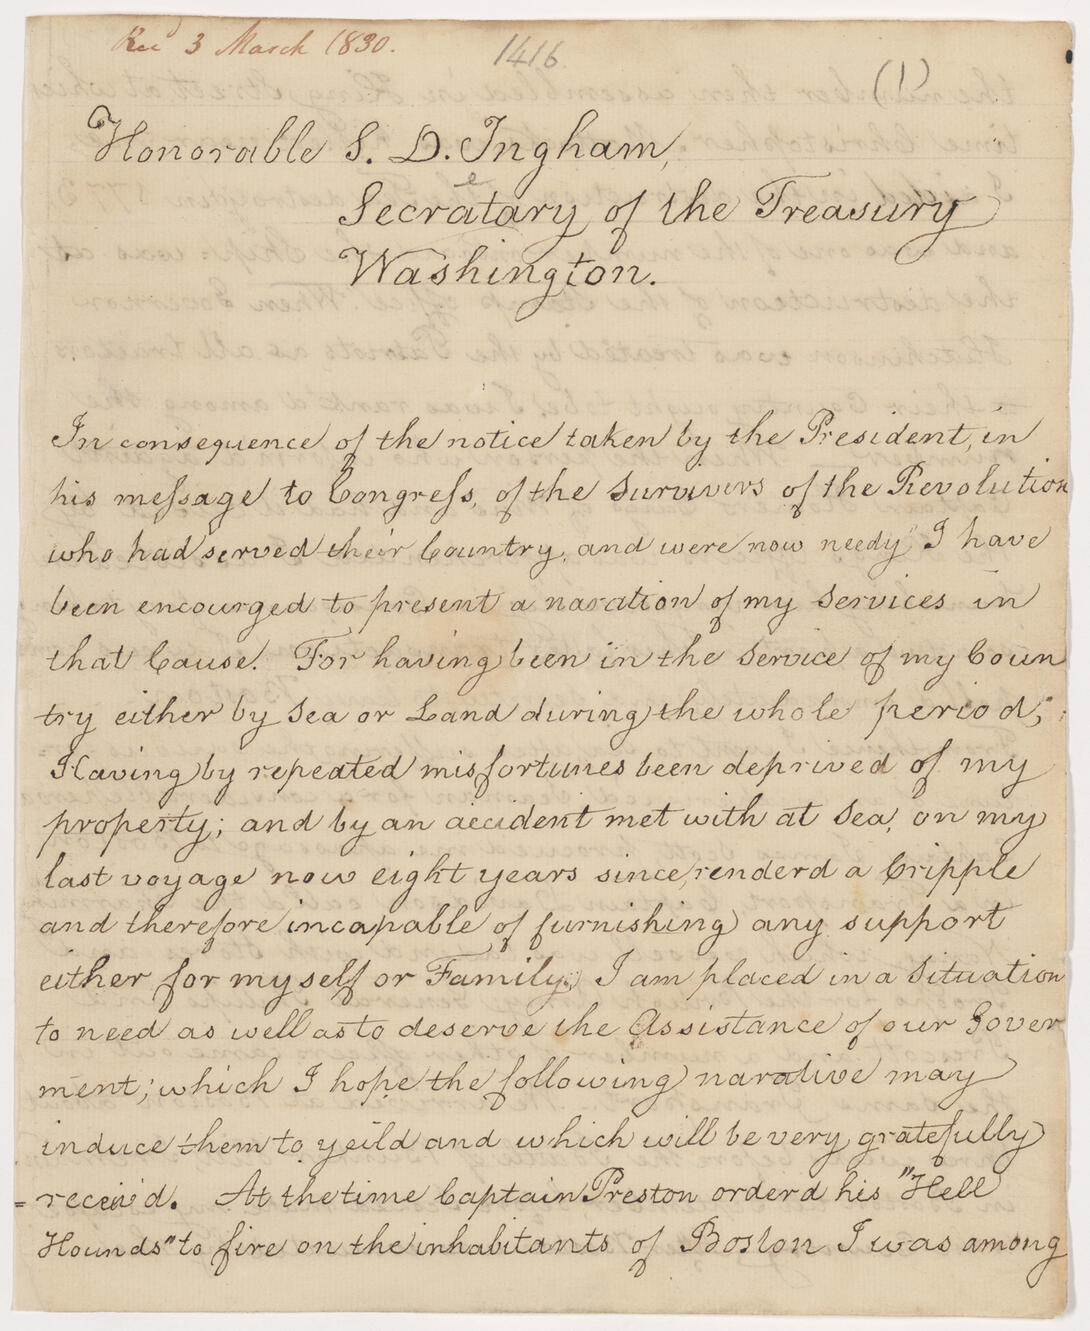 Recd 3 March 1830.
1416
(1)
Honorable S. D. Ingham,
Secratary of the Treasury
e
Washington.
In consequence of the notice taken by the President, in
his message to Congress, of the Survivers of the Revolution
who had served their Country, and were now needy I have
been encourged to present a naration of my Services in
that Cause. For having been in the Service of my Coun
try either by Sea or Land during the whole period;
Having by repeated misfortunes been deprived of my
property; and by an accident met with at Sea, on my
last voyage now eight years since, renderd a Cripple
and therefore incapable of furnishing any support
either for myself or Family; I am placed in a Situation
to need as well as to deserve the Assistance of our Gover
ment; which I hope the following narative may
induce them to yeild and which will be very gratefully
= receiv'd. At the time Captain Preston orderd his "Hell
Hounds" to fire on the inhabitants of Boston I was among